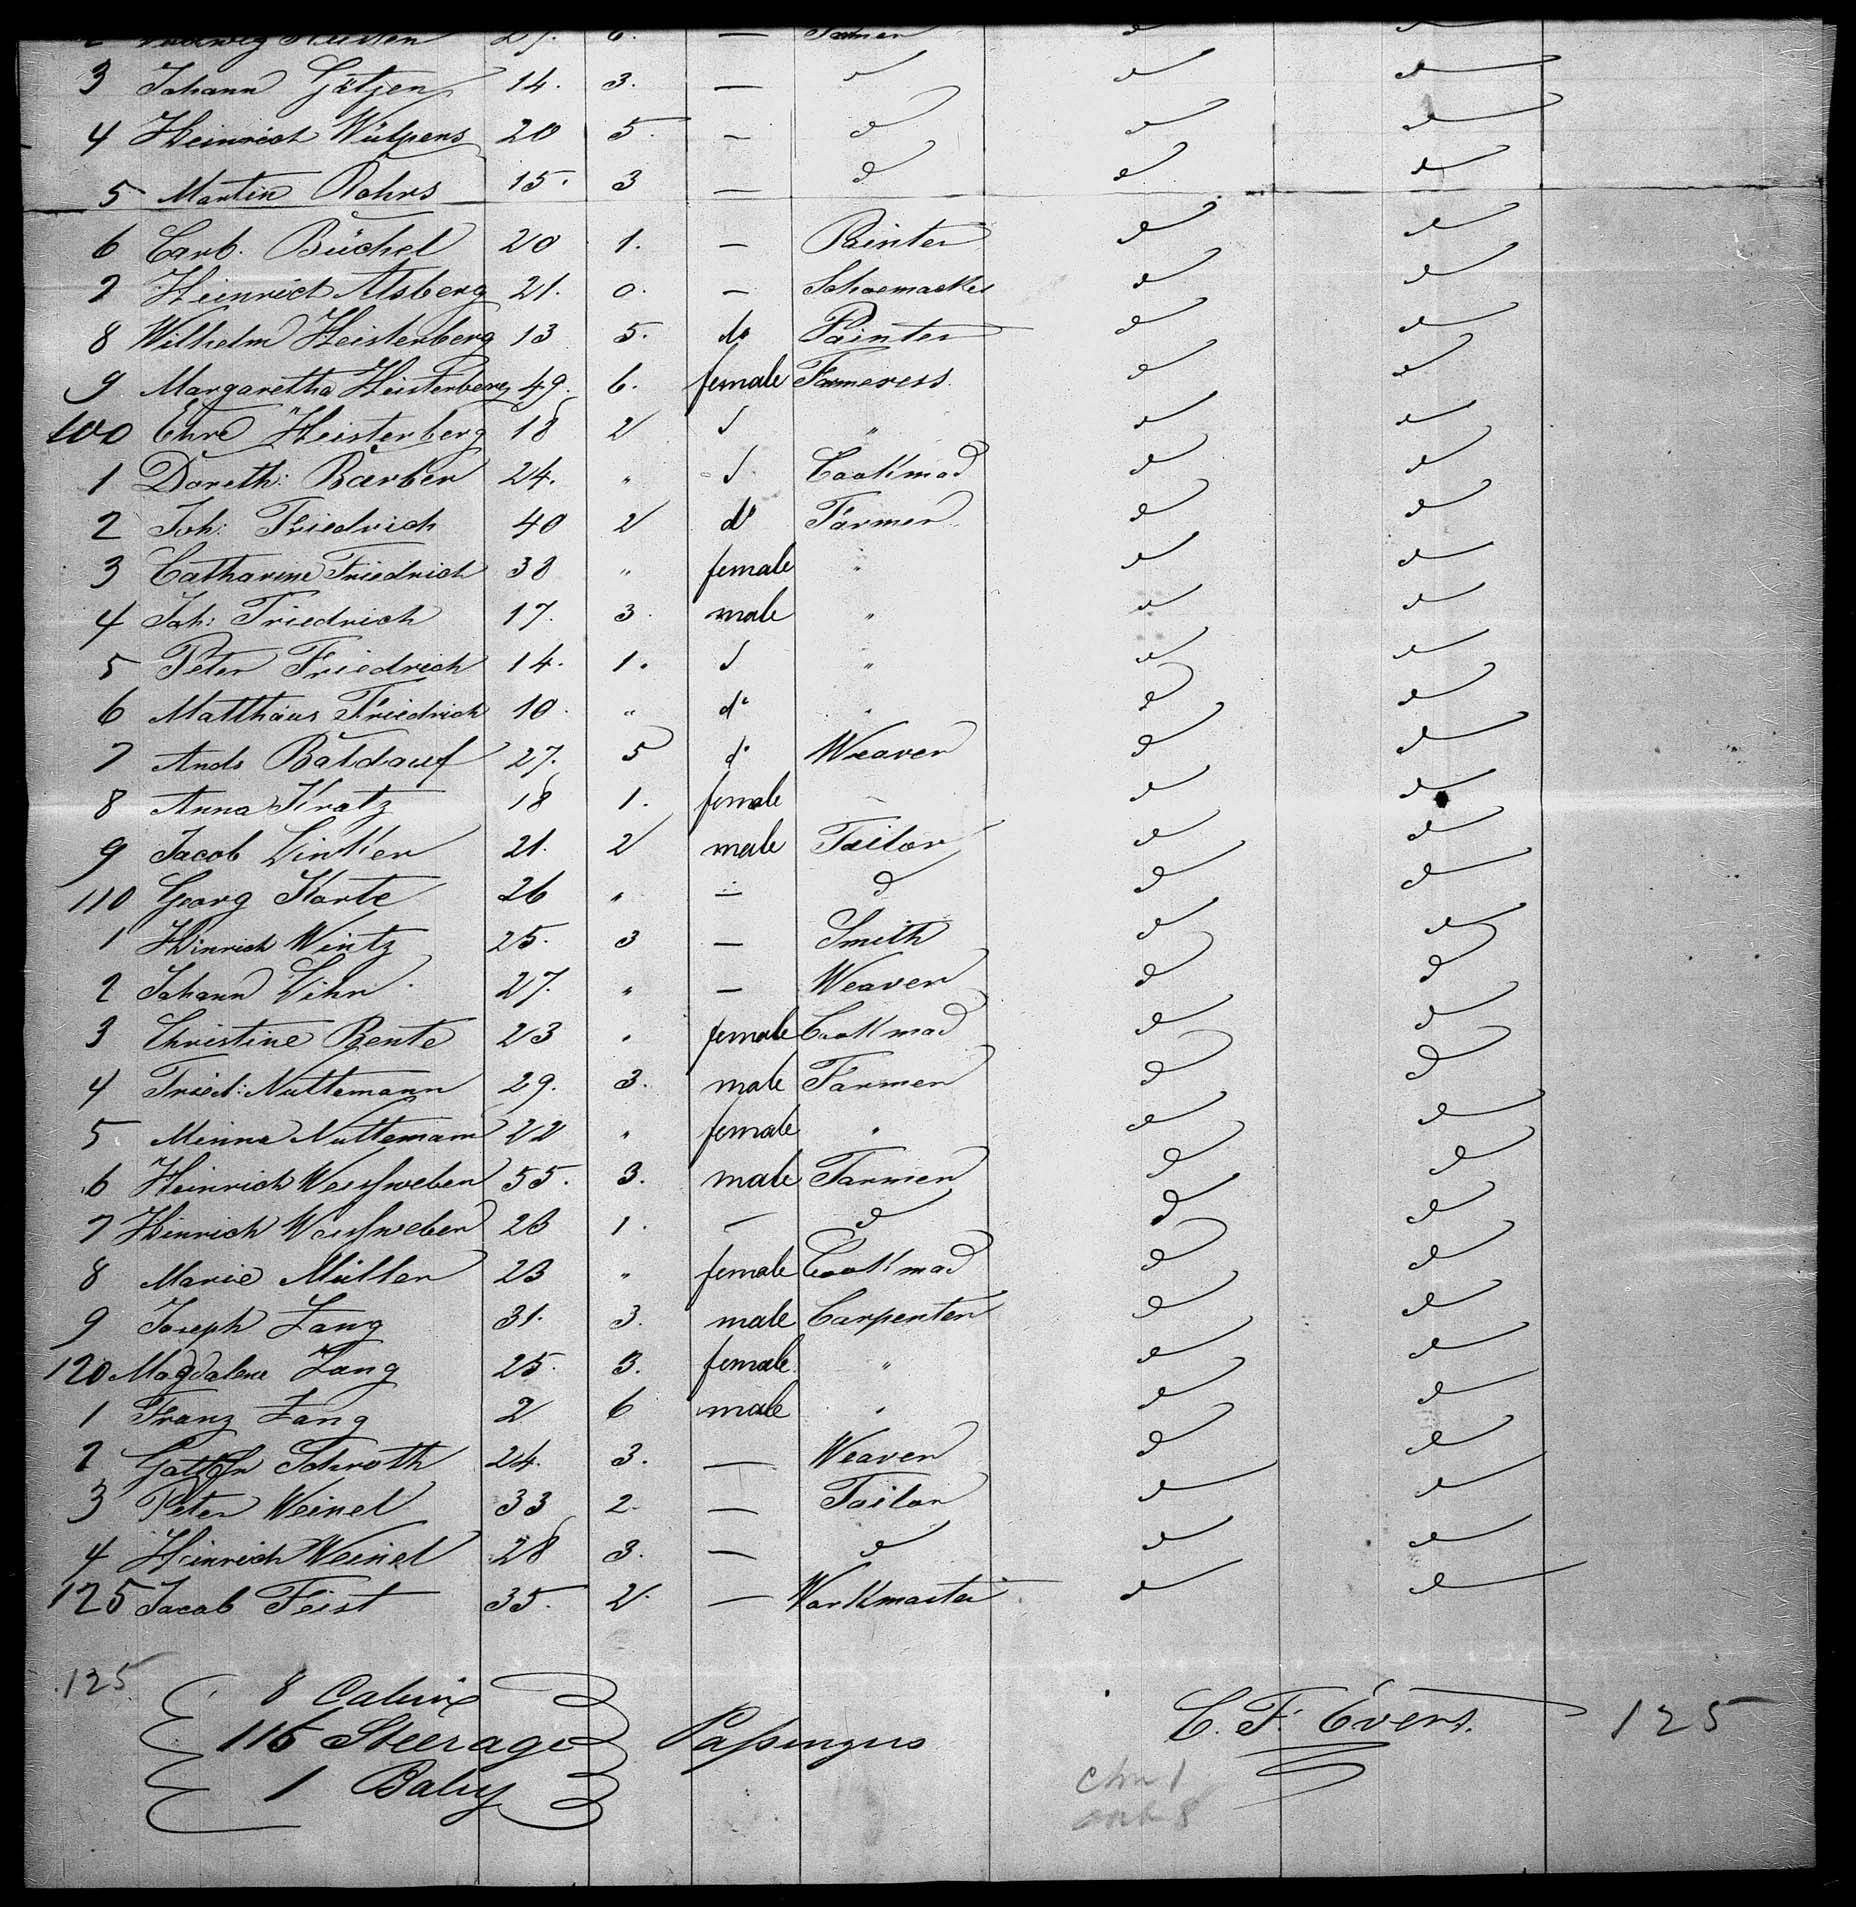 27. 6. — Farmer d d
3 Johann Götzen 14. 3. — d d d
4 Heinrich Wülpens 20 5. — d d d
5 Martin Rohrs 15. 3 — d d d
6 Carb. Büchel 20 1. — Painter d d
7 Heinrich Alsberg 21. 0. — Schoemacker d d
8 Wilhelm Heisterberg 13 5. do Painter d d
9 Margaretha Heisterberg 49. 6. female Farmeress d d
100 Ehre Heisterberg 18 2 d " d d
1 Doreth: Barber 24. " d Cookmad d d
2 Joh: Friedrich 40 2 do Farmer d d
3 Catharine Friedrich 38 " female " d d
4 Joh: Friedrich 17. 3. male " d d
5 Peter Friedrich 14. 1. d " d d
6 Matthäus Friedrich 10. " do " d d
7 Ands Baldauf 27. 5 do Weaver d d
8 Anna Kratz 18 1. female d d
9 Jacob Linker 21. 2 male Tailor d d
110 Georg Korte 26 " — d d d
1 Hinrich Wintz 25. 3 — Smith d d
2 Johann Lihr 27. " — Weaver d d
3 Christine Bente 23 " female Cookmad d d
4 Fried: Nuttemann 29. 3. male Farmer d d
5 Minna Nuttemann 22 " female " d d
6 Heinrich Weissweber 55. 3. male Farmer d d
7 Hinrich Weissweber 23 1. — d d d
8 Marie Müller 23 " female Cookmad d d
9 Joseph Zang 31. 3. male Carpenter d d
120 Magdalene Zang 25. 3. female " d d
1 Franz Zang 2 6 male " d d
2 Schroth 24. 3. — Weaver d d
3 Peter Weinel 33 2. — Tailor d d
4 Heinrich Weinel 28 3. — d d d
125 Jacob Feist 35. 2. — Workmaster d d
125
8 Cabin
116 Steerage Passengers C. F. Evers. 125
1 Baby